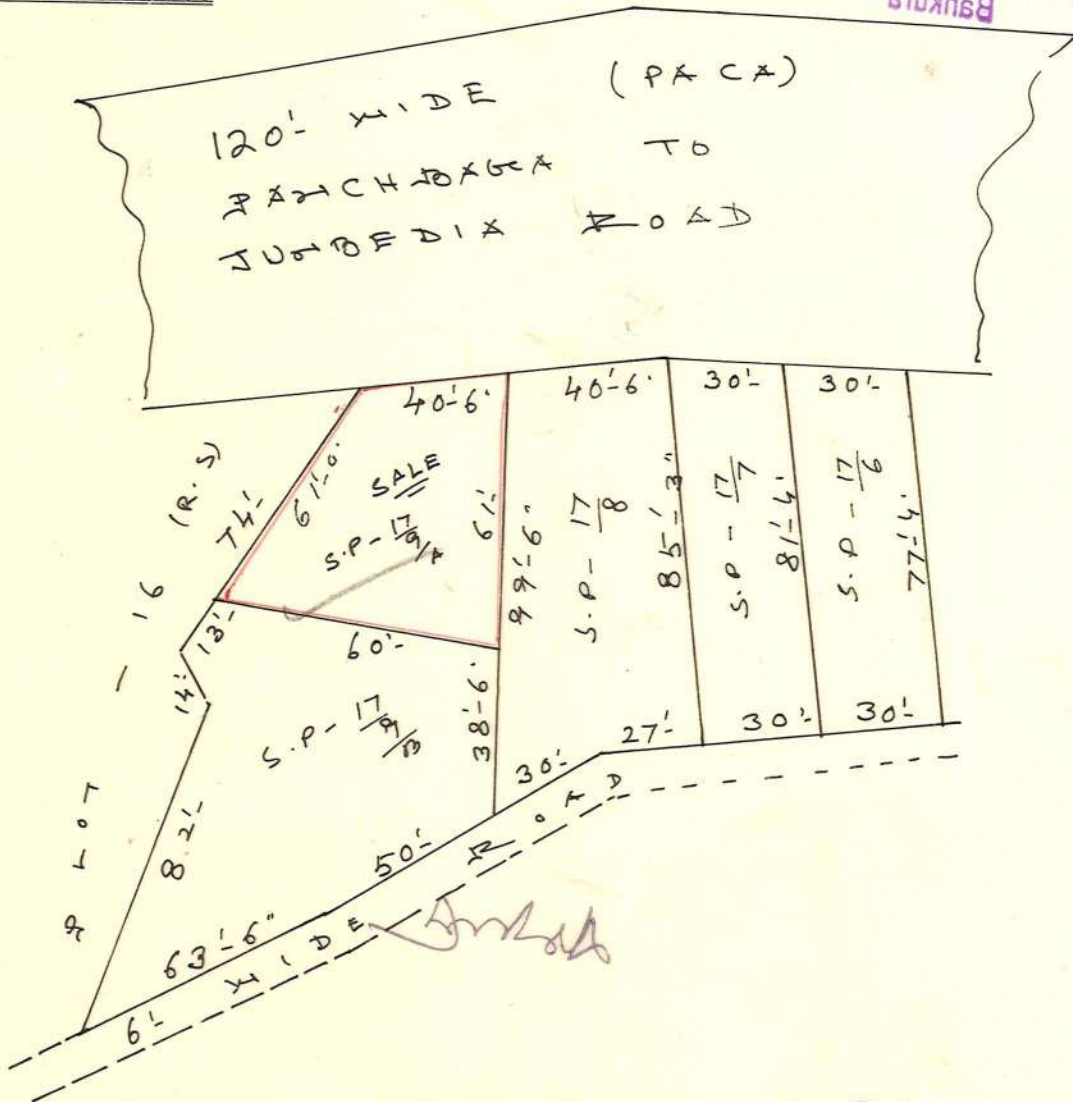 Bankura
120'- WIDE (PACA)
PANCHBAGA TO
JUNBEDIA ROAD
40'-6"
40'-6"
30'-
30'-
PLOT - 16 (R.S)
74'-
61'-0"
SALE
S.P - 17/9/A
61'-
99'-6"
S.P - 17/8
85'-3"
S.P - 17/7
81'-4"
S.P - 17/6
77'-4"
13'-
14'-
60'-
S.P - 17/9/B
38'-6"
82'-
30'-
27'-
30'-
30'-
50'-
63'-6"
6'- WIDE ROAD